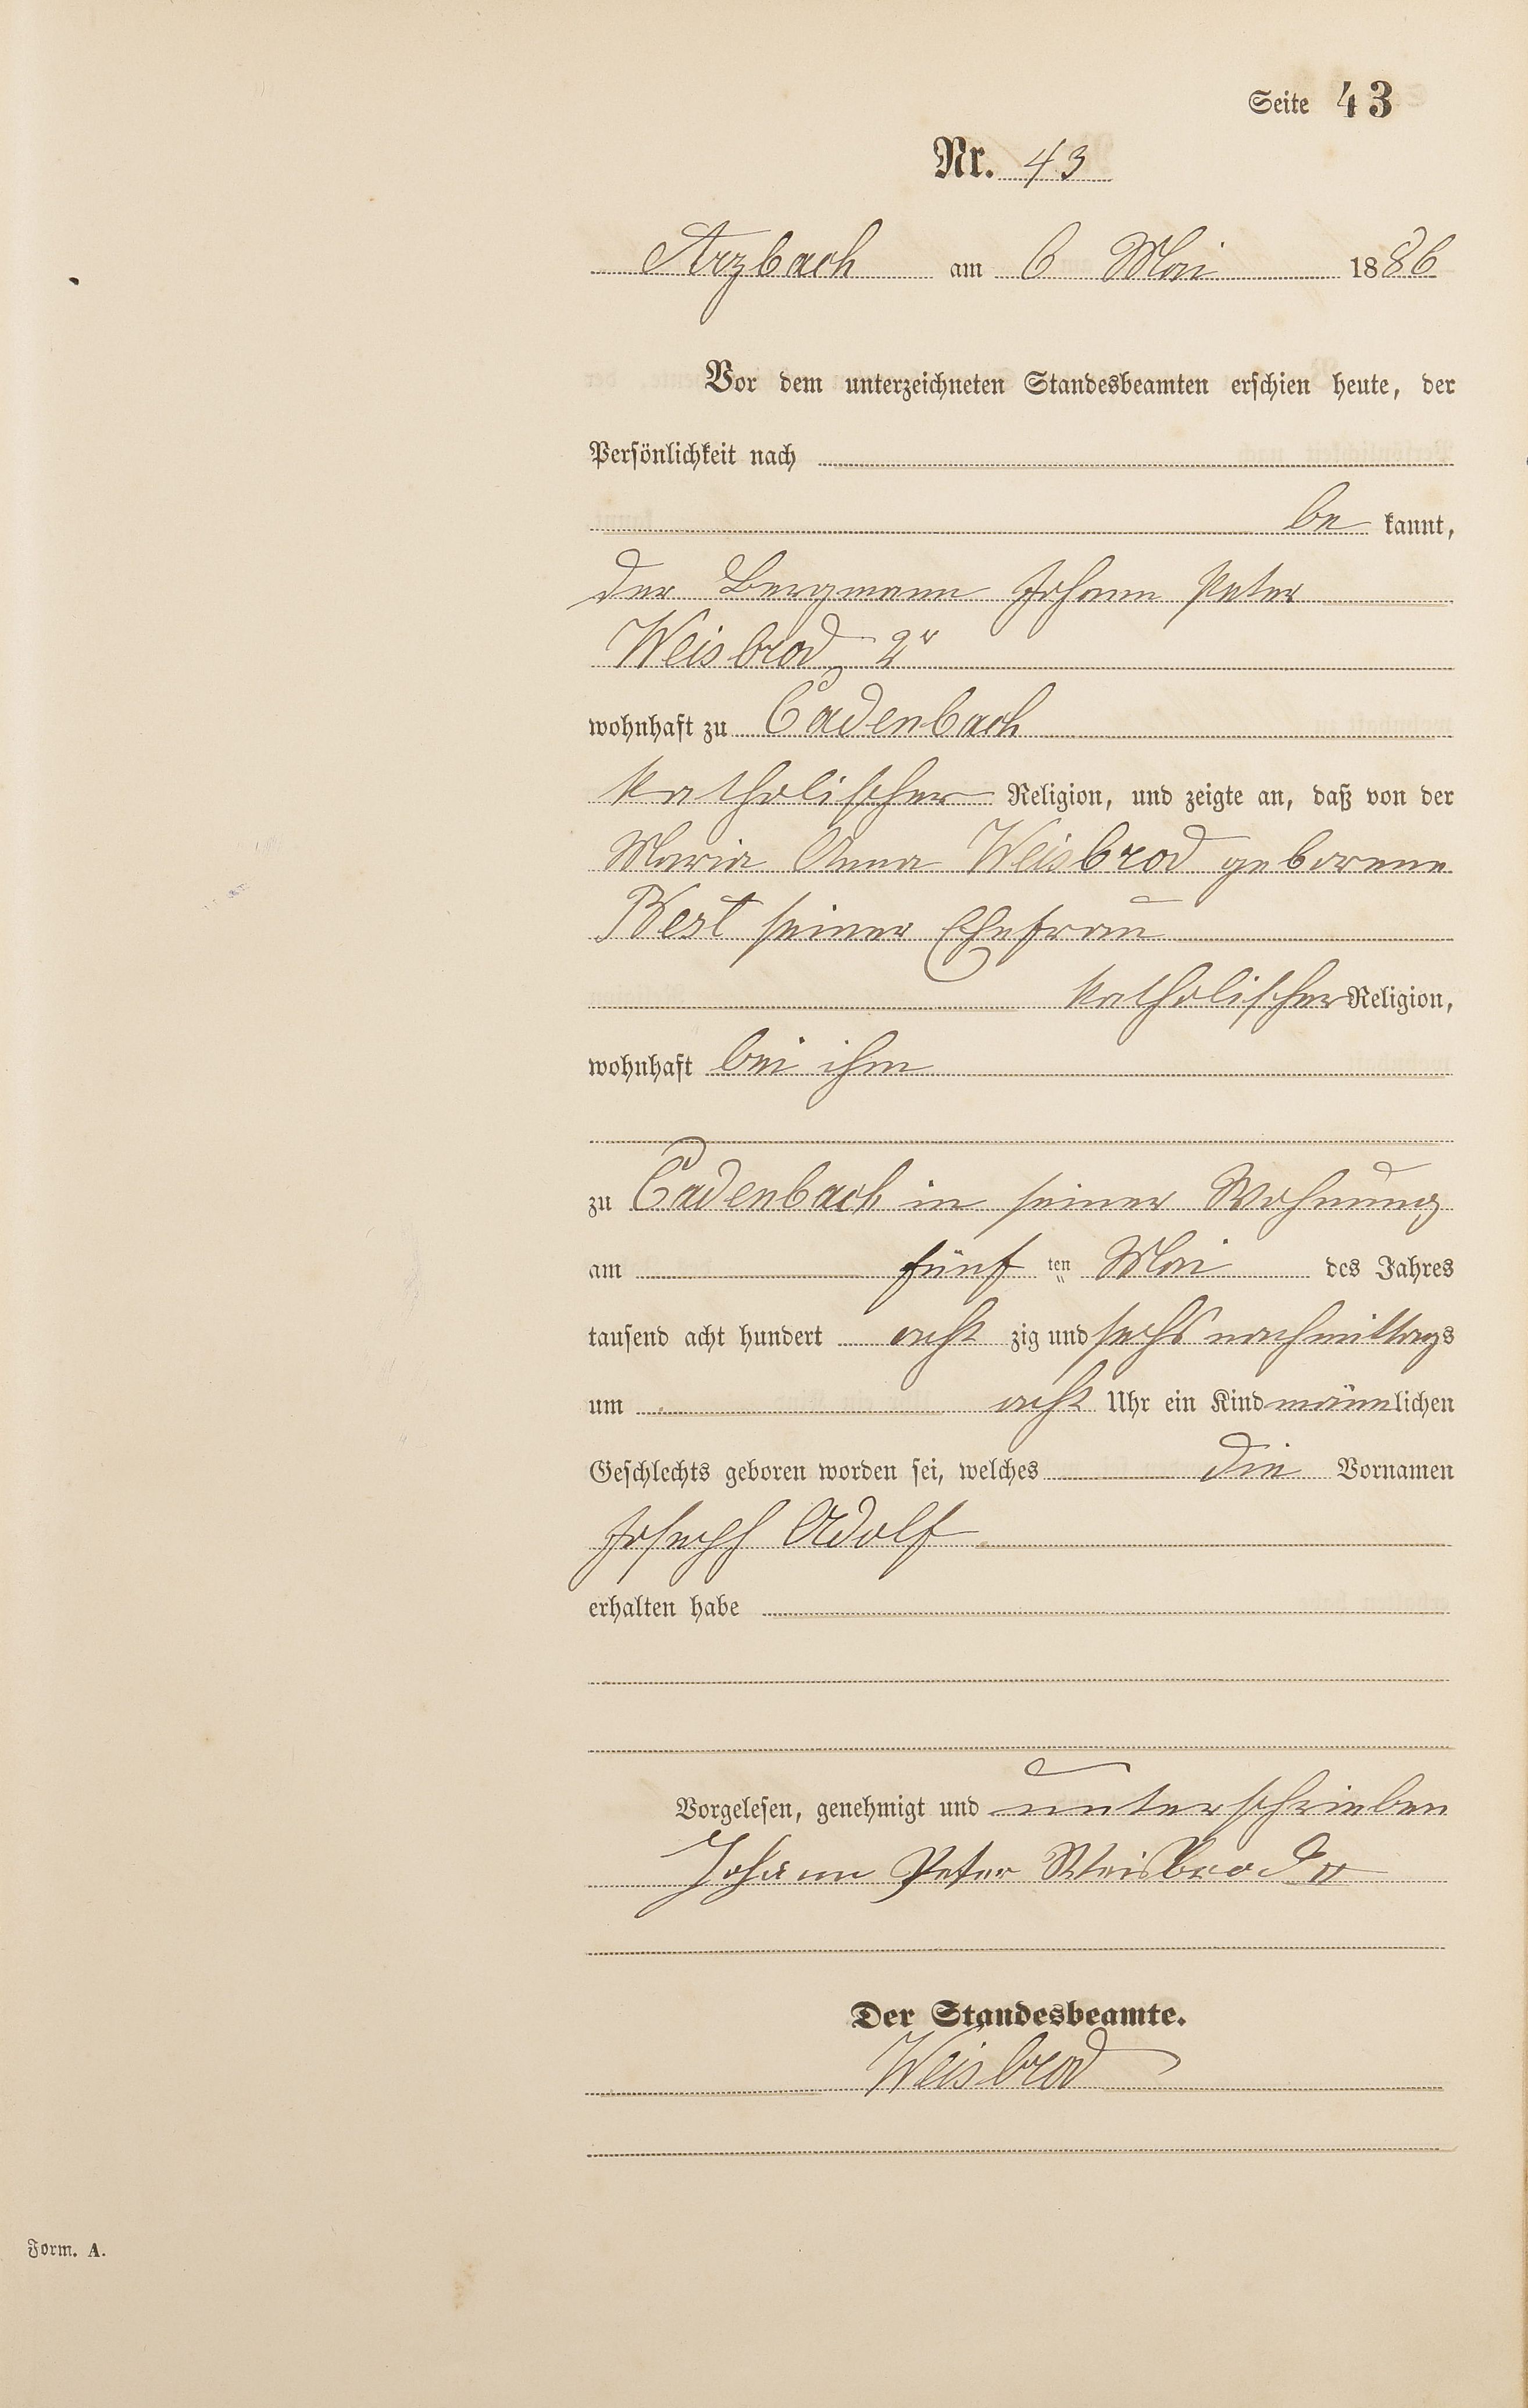 Seite 43
Nr. 43
Arzbach am 6 Mai 1886
Vor dem unterzeichneten Standesbeamten erschien heute, der
Persönlichkeit nach
be kannt,
der Bergmann Johann Peter
Weisbrod 2r
wohnhaft zu Cadenbach
katholischer Religion, und zeigte an, daß von der
Maria Anna Weisbrod geborene
seiner Ehefrau
katholischer Religion,
wohnhaft bei ihm
zu Cadenbach in seiner Wohnung
am fünf ten Mai des Jahres
tausend acht hundert acht zig und sechs nachmittags
um acht Uhr ein Kind männlichen
Geschlechts geboren worden sei, welches die Vornamen
Joseph Adolf
erhalten habe
Vorgelesen, genehmigt und unterschrieben
Johann Peter Weisbrod II
Der Standesbeamte.
Weisbrod
Form. A.